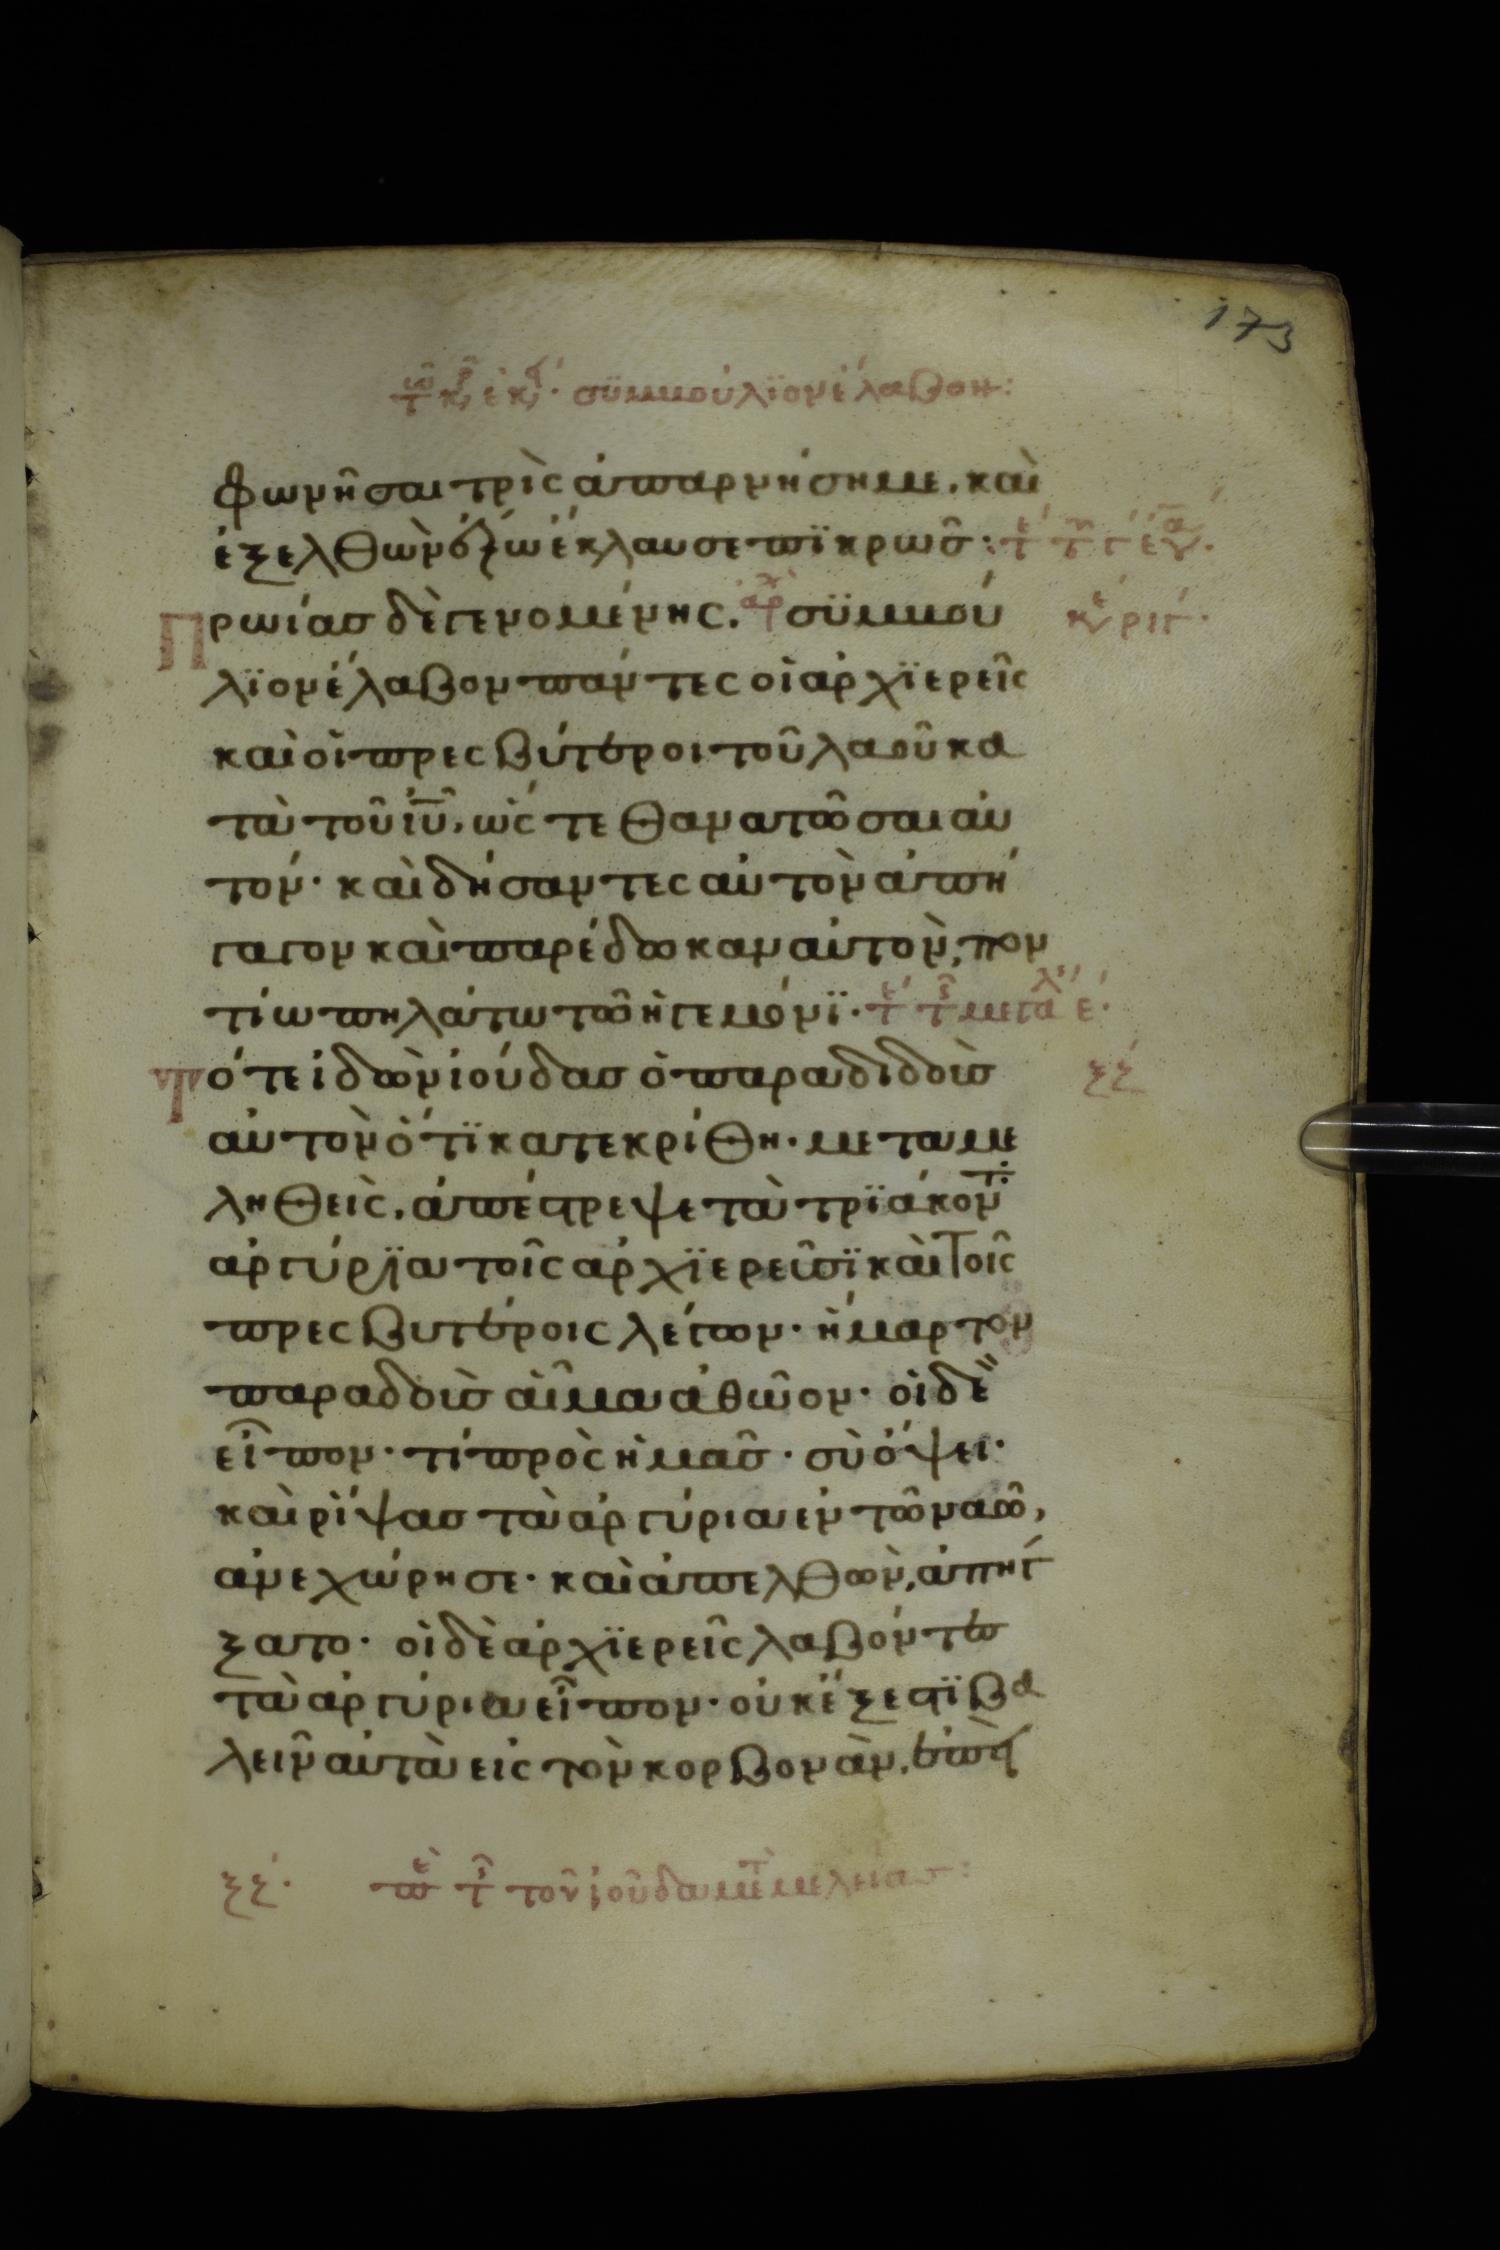 173
συμμούλϊον έλαβον:
φωνῆσαι τρὶς ἀπαρνήσημε. καὶ
ἐξελθὼν ἔξω ἔκλαυσε πϊκρῶσ:
Πρωίασ δὲ γενομένης. ἀρχ συμμού
λϊον έλαβον πάντες οἱ ἀρχϊερεῖς
καὶ οἱ πρεσβύτεροι τοῦ λαοῦ κα
τὰ τοῦ ἰῦ, ὡς τε θανατῶσαι αὐ
τόν· καὶ δήσαντες αὐτὸν ἀπή
γαγον καὶ παρέδωκαν αὐτὸν, πον
τίω πηλάτω τῶ ἡγεμόνϊ·
Τότε ἰδὼν ἰούδασ ὁ παραδιδοὺσ
ξζ
αὐτὸν ὅτϊ κατεκρίθη. μεταμε
ληθεὶς, ἀπέστρεψε τὰ τρϊάκοντ
ἀργύρϊα τοῖς ἀρχϊερεῦσϊ καὶ τοῖς
πρεσβυτέροις λέγων· ἥμαρτον
παραδοὺσ αἷμα ἀθῶον· οἱ δὲ
εἶπον· τί πρὸς ἡμᾶσ· σὺ ὄψει·
καὶ ρίψασ τὰ ἀργύρια ἐν τῶ ναῶ,
ἀνεχώρησε· καὶ ἀπελθὼν, ἀπήγ
ξατο· οἱ δὲ ἀρχϊερεῖς λαβόντες
τὰ ἀργύρια εἶπον· οὐκ ἔξεστϊ βα
λεῖν αὐτὰ εἰς τὸν κορβονὰν, ἐπεὶ
ξζ· τοῦ ἰούδα